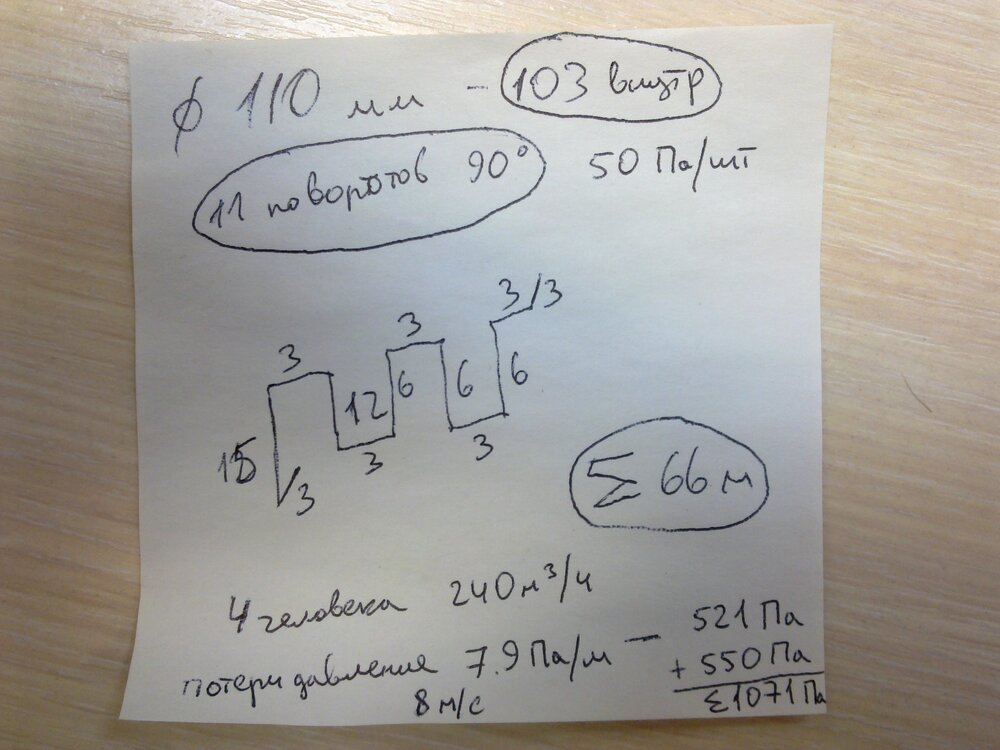 ϕ 110 мм - 103 внутр
11 поворотов 90° 50 Па/шт
3/3
3
3
6
6
12
6
15
3
3
3
Σ 66 м
4 человека 240 м³/ч
потери давления 7.9 Па/м — 521 Па
8 м/с + 550 Па
Σ1071 Па